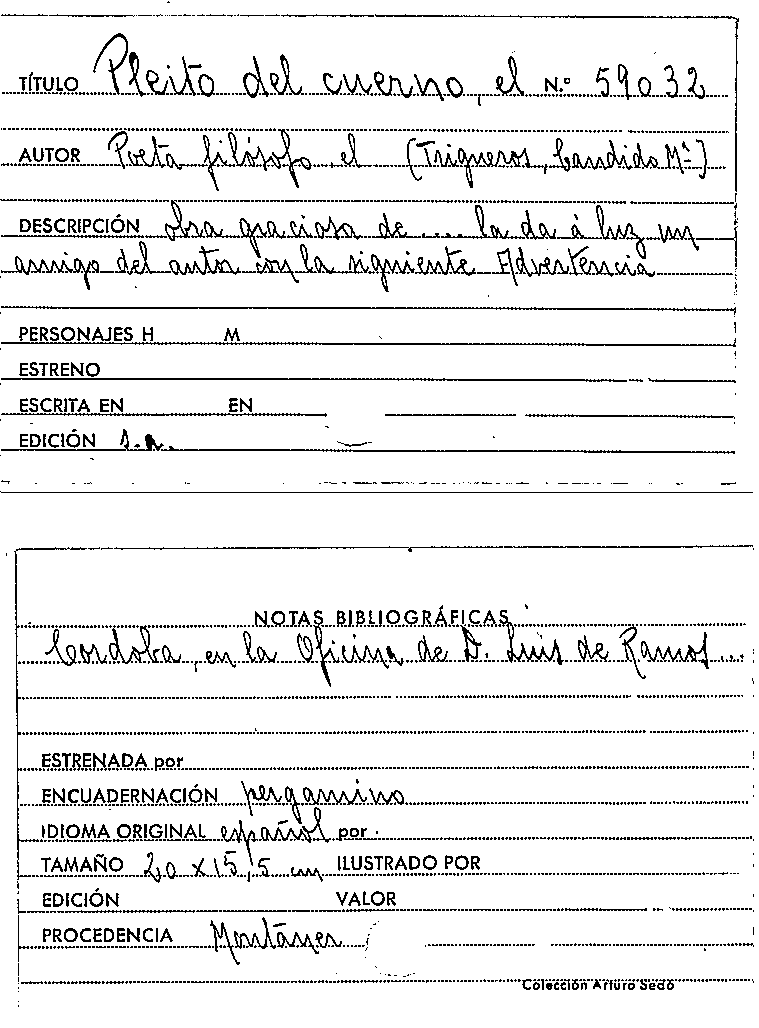 TÍTULO Pleito del cuerno, el N.º 59032
AUTOR Poeta filósofo, el (Trigueros, Candido Mª)
DESCRIPCIÓN obra graciosa de .... la da à luz un
amigo del autor con la siguiente Advertencia
PERSONAJES H M
ESTRENO
ESCRITA EN EN
EDICIÓN s.a.
NOTAS BIBLIOGRÁFICAS
Cordoba, en la Oficina de D. Luis de Ramos...
ESTRENADA por
ENCUADERNACIÓN pergamino
IDIOMA ORIGINAL español por
TAMAÑO 20 x 15,5 cm ILUSTRADO POR
EDICIÓN VALOR
PROCEDENCIA Montáner
Colección Arturo Sedó